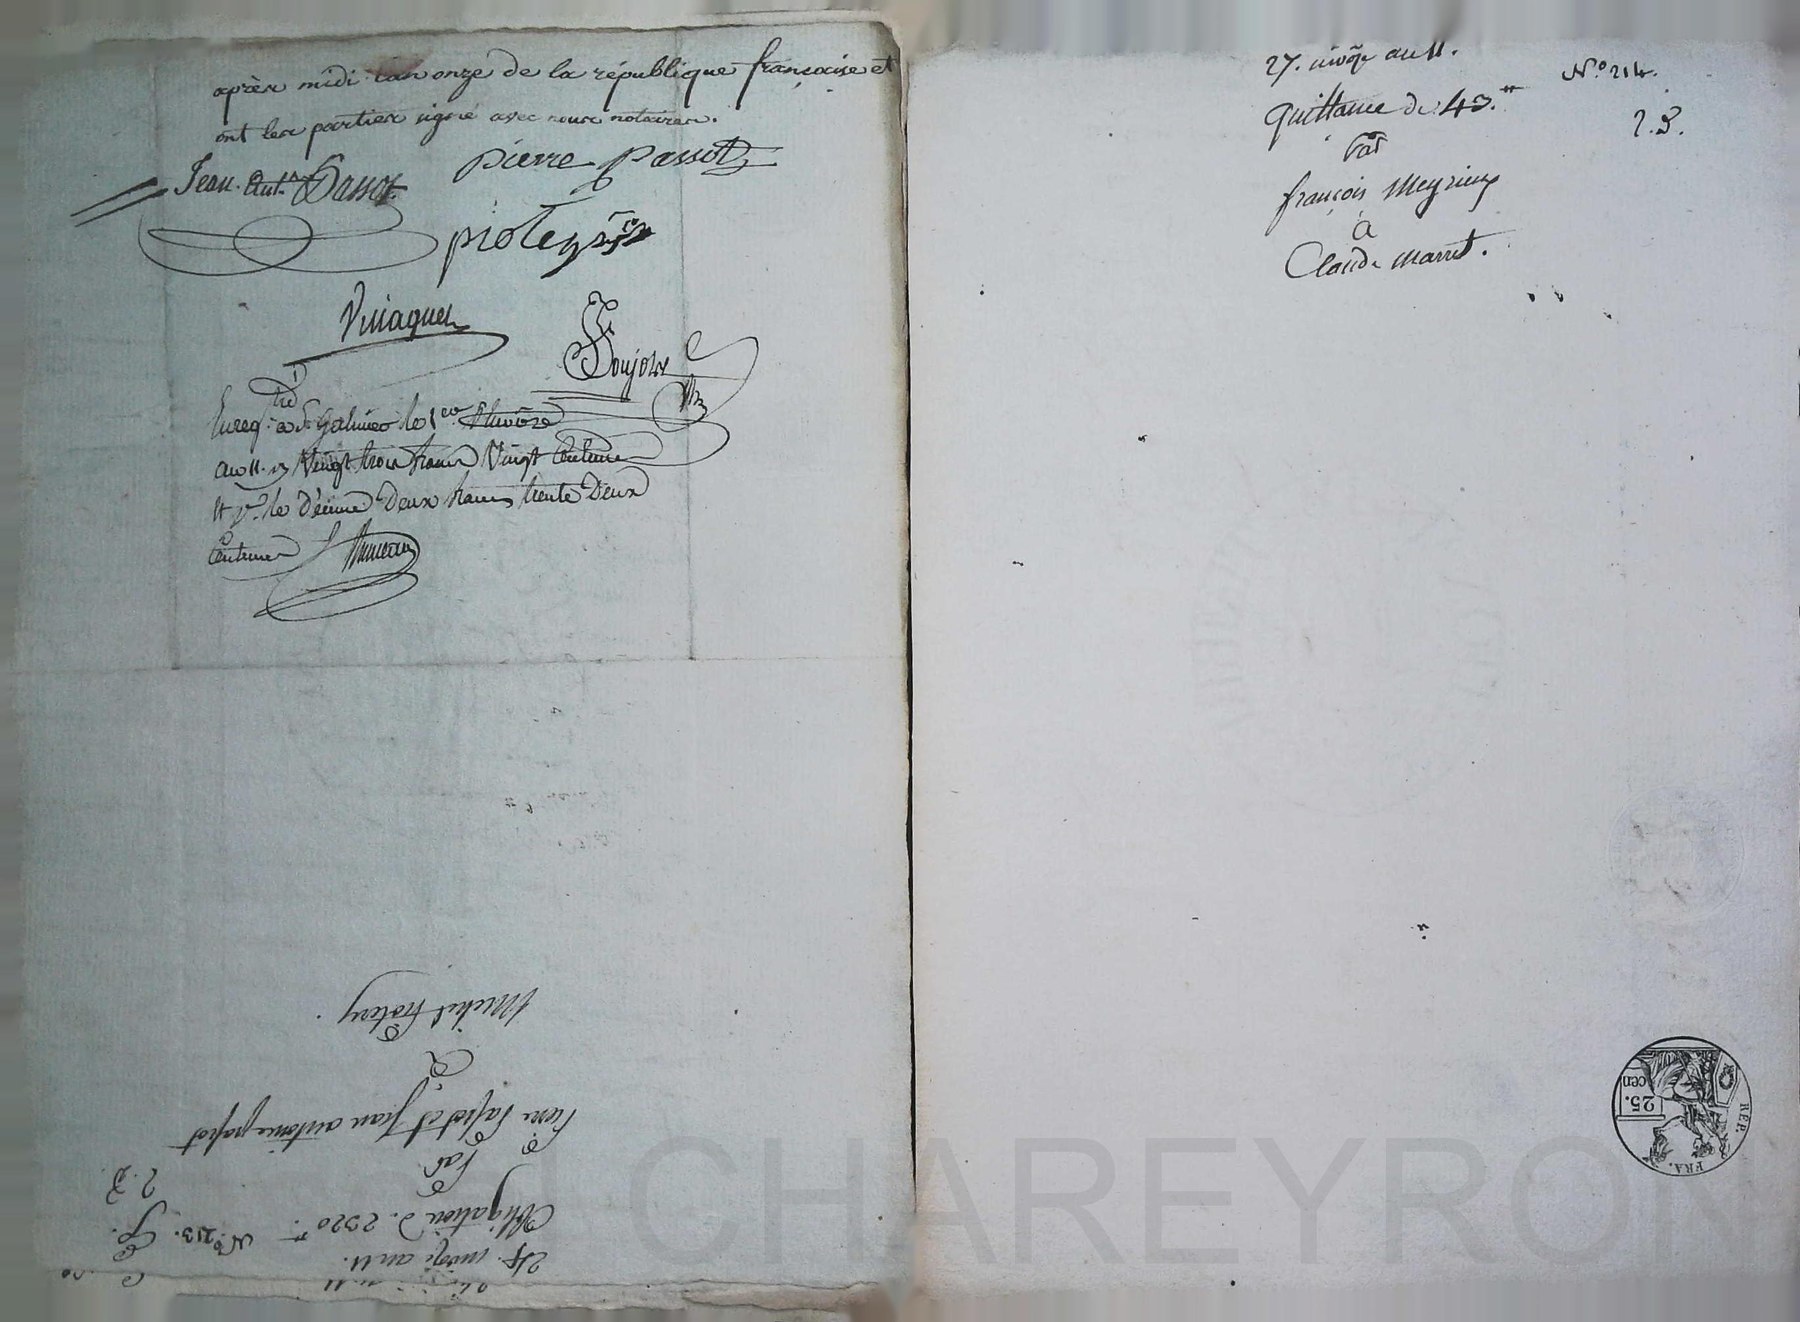 après midi l'an onze de la république française et
ont les parties signé avec nous notaires.
Jean Ant.ne Passot
pierre passot
protery
Viriaguer
Soujols
Enreg.tré a St Galmier le 1er Pluviôse
an 11. Vingt trois francs Vingt Centimes
et pr. le Décime Deux francs trente Deux
Centimes
27. nivôse an 11.
N.° 214.
quittance de 43.tt
2.P.
Par
françois Meyrieux
à
Claude Marret.
24. nivôse an 11.
N.° 213.
Obligation de 2320.tt
Par
Pierre Passot et Jean antoine passot
à
Michel Protery
REP. FRA.
25. cen
CHAREYRON